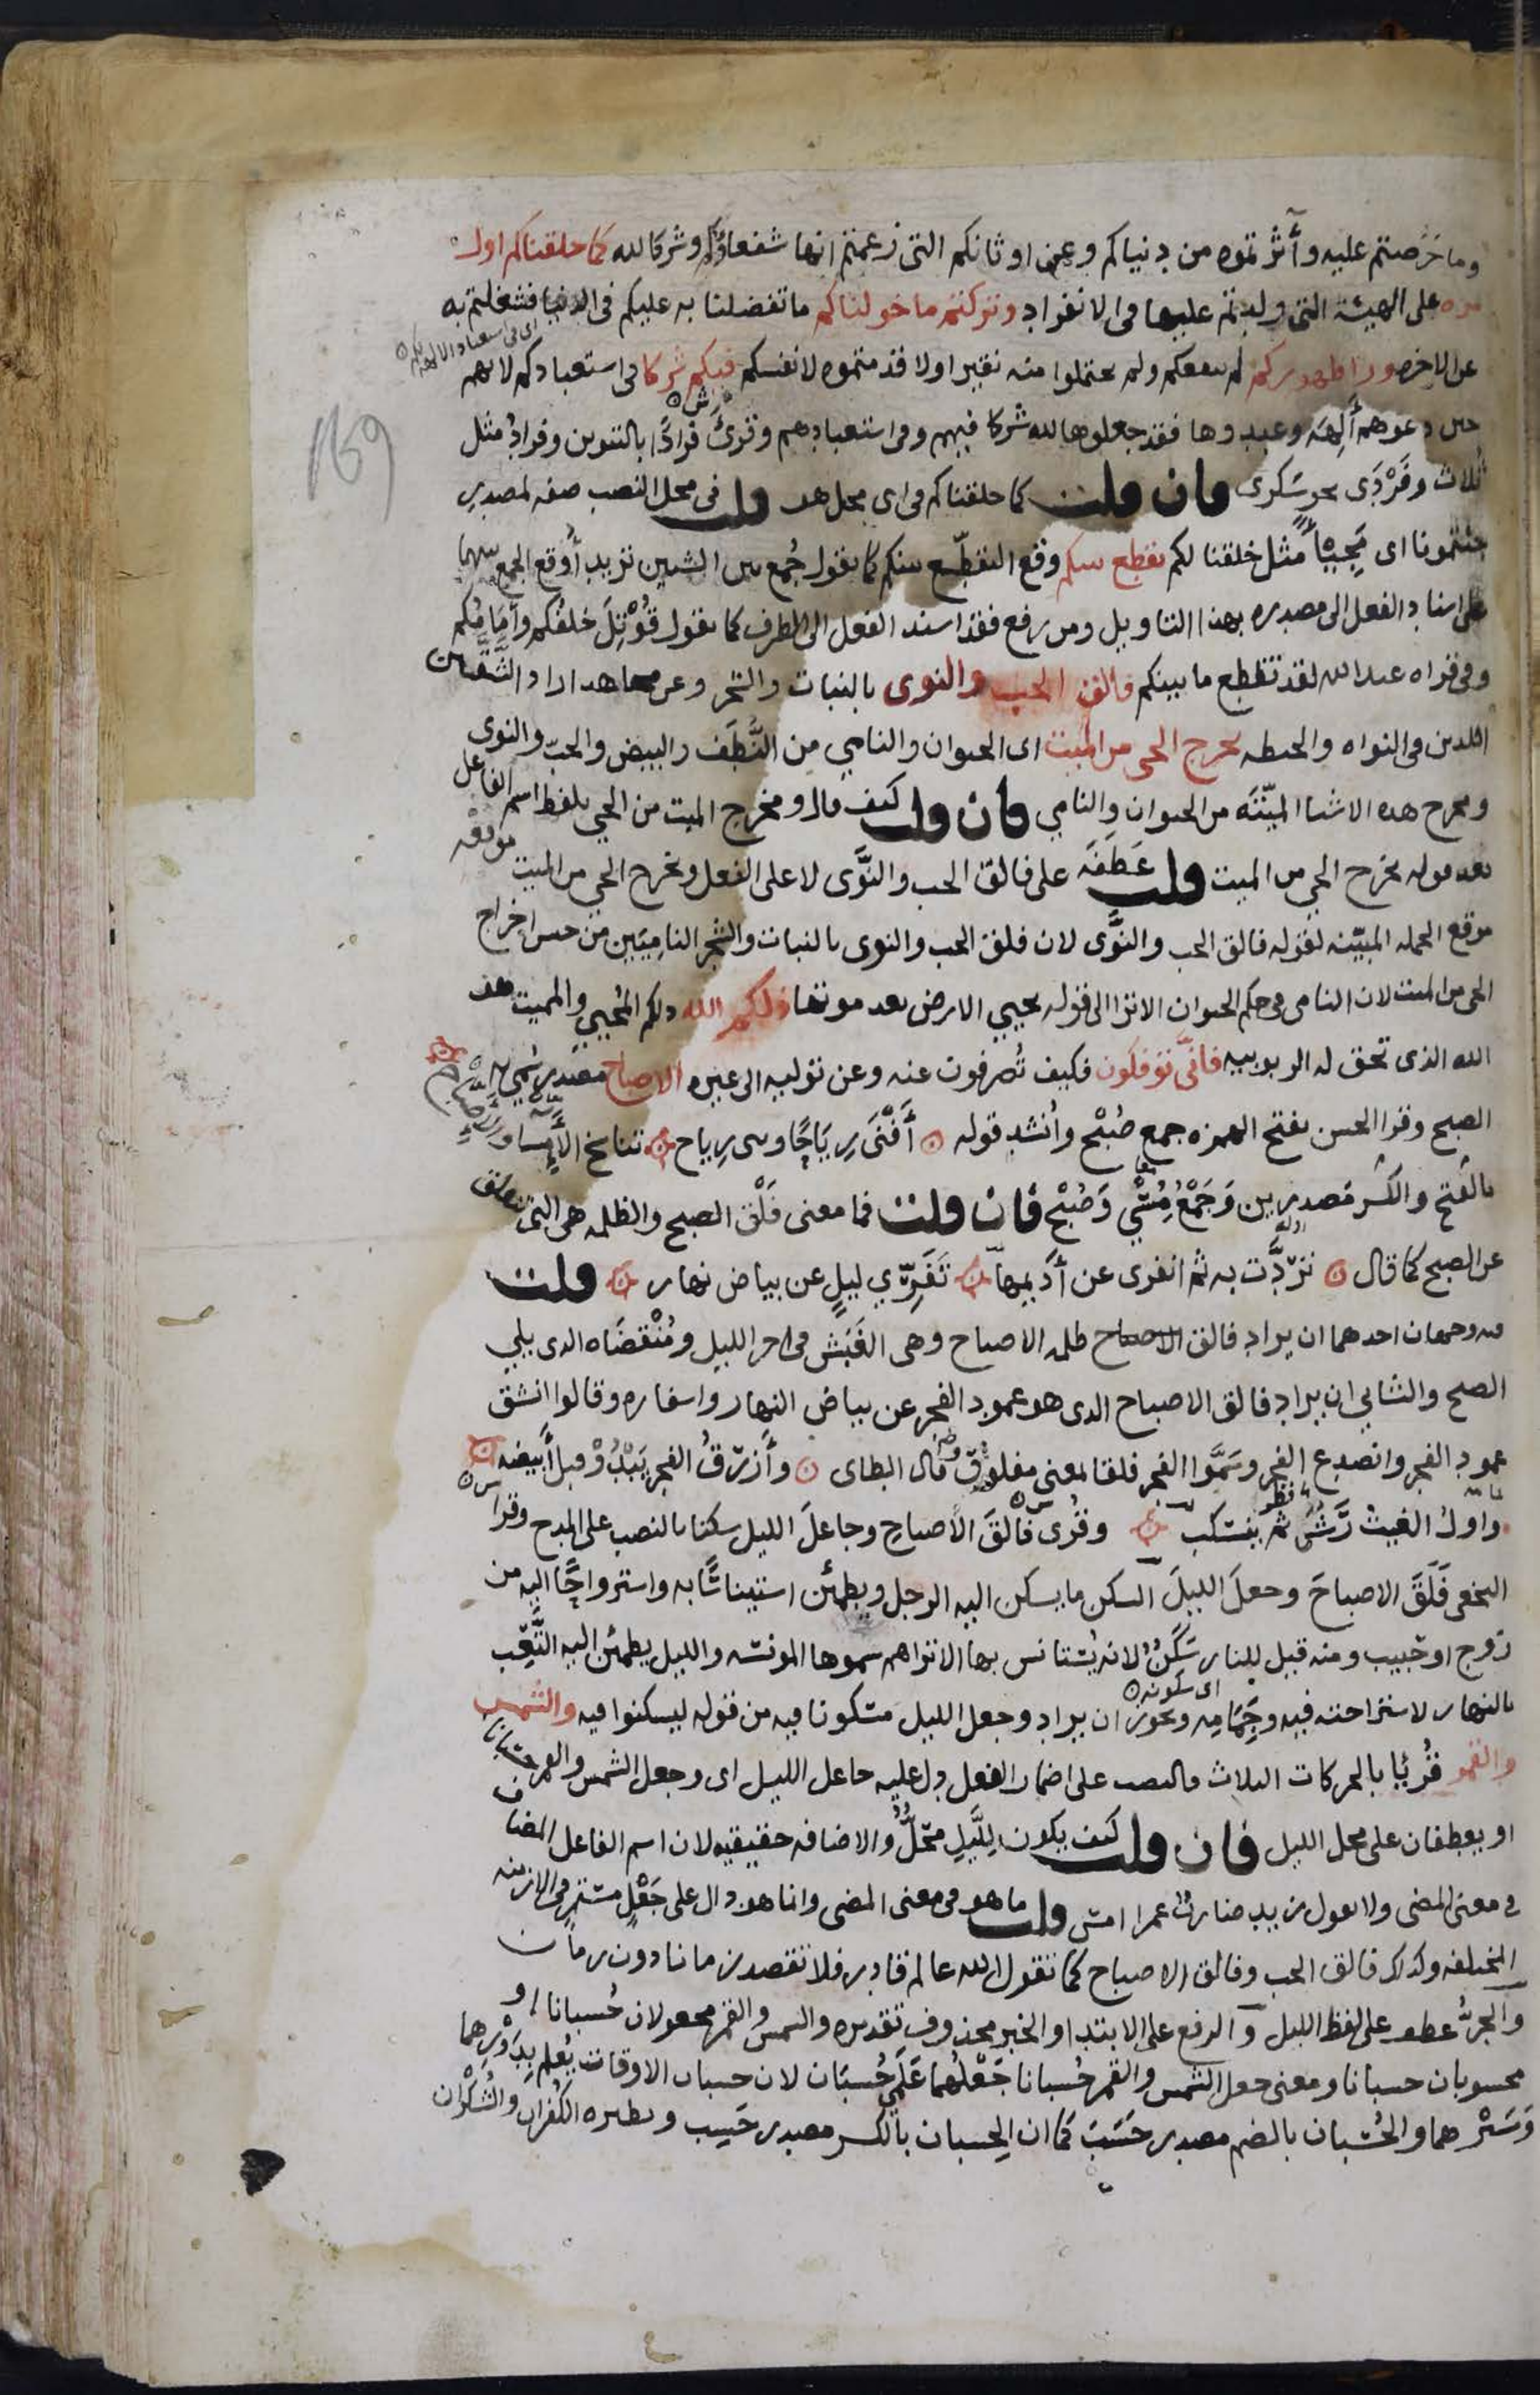 وما حَرَصتم عليه وآثرتموه من دنياكم وعن اوثانكم التى زعمتم انها شفعاؤكم وشركا لله كما خلقناكم اول
مره على الهيئة التى ولدتم عليها فى الانفراد وتركتم ما خولناكم ما تفضلنا به عليكم فى الدنيا فشغلتم به
عن الاخره ورا ظهوركم لم ينفعكم ولم تحتملوا منه نقيرا ولا قدمتموه لانفسكم فيكم شركا فى استعبادكم لانهم
حين دعوهم آلهة وعبدوها فقد جعلوها لله شركا فيهم وفى استعبادهم وقرئ فرادًا بالتنوين وفرادَ مثل
ثُلاث وفَرْدَى نحو سَكرى فان قلت كما خلقناكم فى اى محل هو قلت فى محل النصب صفه لمصدر
جئتمونا اى مَجِيئًا مثل خلقنا لكم تقطع بينكم وقع التقطّع بينكم كما تقول جُمع بين الشيين تريد أوقع الجمع بينهما
على اسناد الفعل الى مصدره بهذا التاويل ومن رفع فقد اسند الفعل الى الظرف كما تقول قُوتِلَ خلفُكم وأمَامُكم
وفى قراه عبد الله لقد تقطع ما بينكم فالق الحب والنوى بالنبات والشجر وعن مجاهد اراد الشَّقَّين
اللذين فى النواه والحنطه يخرج الحى من الميت اى الحيوان والنامي من النُّطَف والبيض والحبّ والنوى
ومخرج هذه الاشيا الميّتَه من الحيوان والنامي فان قلت كيف قال ومخرج الميت من الحي بلفظ اسم الفاعل
بعد قوله يخرج الحي من الميت قلت عَطَفَه على فالق الحب والنَّوَى لا على الفعل ويخرج الحي من الميت موقعه
موقع الجمله المبيّنه لقوله فالق الحب والنَّوَى لان فلق الحب والنوى بالنبات والشجر النامِيَين من جنس اخراج
الحى من الميت لان النامى فى حكم الحيوان الا ترا الى قوله يحيي الارض بعد موتها ذلكم الله ذلكم المُحْيِي والمميت هو
الله الذى تحق له الربوبيه فانَّى توفكون فكيف تُصرفون عنه وعن توليه الى غيره الاصباح مصدر سُمّي به
الصبح وقرا الحسن بفتح الهمزه جمع صُبْح وأنشد قوله أَفْنَى رِيَاحًا وبنى رياح تناسخ الأمسا والأصباح
بالفتح والكسر مَصدرين وَجَمْعُ مُسْيٍ وَصُبْح فان قلت فما معنى فَلْق الصبح والظلمه هى التى تنفلق
عن الصبح كما قال تردَّت به ثم انفرى عن أديمها تَفَرِّيَ ليلٍ عن بياض نهار قلت
فيه وجهان احدهما ان يراد فالق الاصباح ظلمه الاصباح وهى الغَبَش فى اخر الليل ومُنْقضَاه الذى يلي
الصبح والثانى ان يراد فالق الاصباح الذى هو عمود الفجر عن بياض النهار واسفاره وقالوا انشق
عمود الفجر وانصدع الفجر وسَمَّوا الفجر فلقا لمعنى مفلوق قال الطاى وأزرقُ الفجر يَبْدُوْ قبل أبيضه
واولُ الغيث رَشٌّ ثم ينسكب وقُرى فالقَ الاصباحِ وجاعلَ الليل سكنا بالنصب على المدح وقرا
النخعى فَلَقَ الاصباحَ وجعلَ الليلَ السكن ما يسكن اليه الرجل ويطمئن استيناسًا به واسترواحًا اليه من
زوج او حَبيب ومنه قيل للنار سَكَنٌ لانه يُستانس بها الا تراهم سموها المونسه والليل يطمئن اليه التَّعِب
بالنهار لاستراحته فيه وجَمَامِه ويجوز ان يراد وجعل الليل مسكونا فيه من قوله ليسكنوا فيه والشمس
والقمر قُرئا بالحركات الثلاث فالنصب على اضمار الفعل دل عليه جاعل الليل اى وجعل الشمس والقمر حسبانا
او يعطفان على محل الليل فان قلت كيف يكون لِلَّيلِ محَلٌّ والاضافه حقيقيه لان اسم الفاعل المضاف
فى معنى المضى ولا تقول زيد ضاربٌ عمرا امس قلت ما هو فى معنى المضى وانما هو دال على جَعْلٍ مستمر فى الازمنه
المختلفه وكذلك فالق الحب وفالق الاصباح كما تقول الله عالم قادر فلا تقصد زمانا دون زمان
والجرُّ عطف على لفظ الليل والرفع على الابتدا والخبر محذوف تقديره والشمس والقمر مجعولان حُسبانا او
محسوبان حسبانا ومعنى جعل الشمس والقمر حُسبانا جَعْلُهما عَلَمَى حُسبَان لان حسبان الاوقات يُعلم بِدَوْرِهما
وَسَيْرهما والحُسْبان بالضم مصدر حَسَبَ كما ان الحِسبان بالكسر مصدر حَسِب ونظيره الكُفران والشُّكْرَان
169